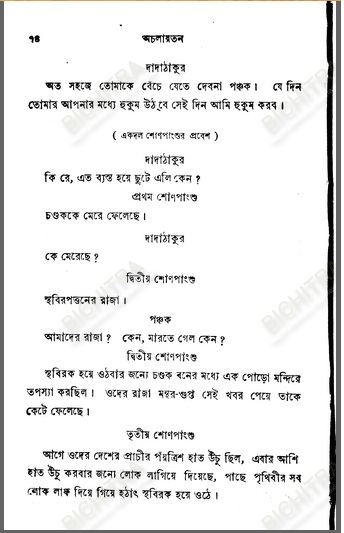 ৭৪ অচলায়তন
দাদাঠাকুর
অত সহজে তোমাকে বেঁচে যেতে দেবনা পঞ্চক। যে দিন
তোমার আপনার মধ্যে হুকুম উঠবে সেই দিন আমি হুকুম করব।
( একদল শোণপাংশুর প্রবেশ )
দাদাঠাকুর
কি রে, এত ব্যস্ত হয়ে ছুটে এলি কেন ?
প্রথম শোণপাংশু
চণ্ডককে মেরে ফেলেছে।
দাদাঠাকুর
কে মেরেছে ?
দ্বিতীয় শোণপাংশু
স্থবিরপত্তনের রাজা।
পঞ্চক
আমাদের রাজা ? কেন, মারতে গেল কেন ?
দ্বিতীয় শোণপাংশু
স্থবিরক হয়ে ওঠবার জন্যে চণ্ডক বনের মধ্যে এক পোড়ো মন্দিরে
তপস্যা করছিল। ওদের রাজা মন্থর-গুপ্ত সেই খবর পেয়ে তাকে
কেটে ফেলেছে।
তৃতীয় শোণপাংশু
আগে ওদের দেশের প্রাচীর পঁয়ত্রিশ হাত উঁচু ছিল, এবার আশি
হাত উঁচু করবার জন্যে লোক লাগিয়ে দিয়েছে, পাছে পৃথিবীর সব
লোক লাফ দিয়ে গিয়ে হঠাৎ স্থবিরক হয়ে ওঠে।
BICHITRA
BICHITRA
BICHITRA
BICHITRA
BICHITRA
BICHITRA